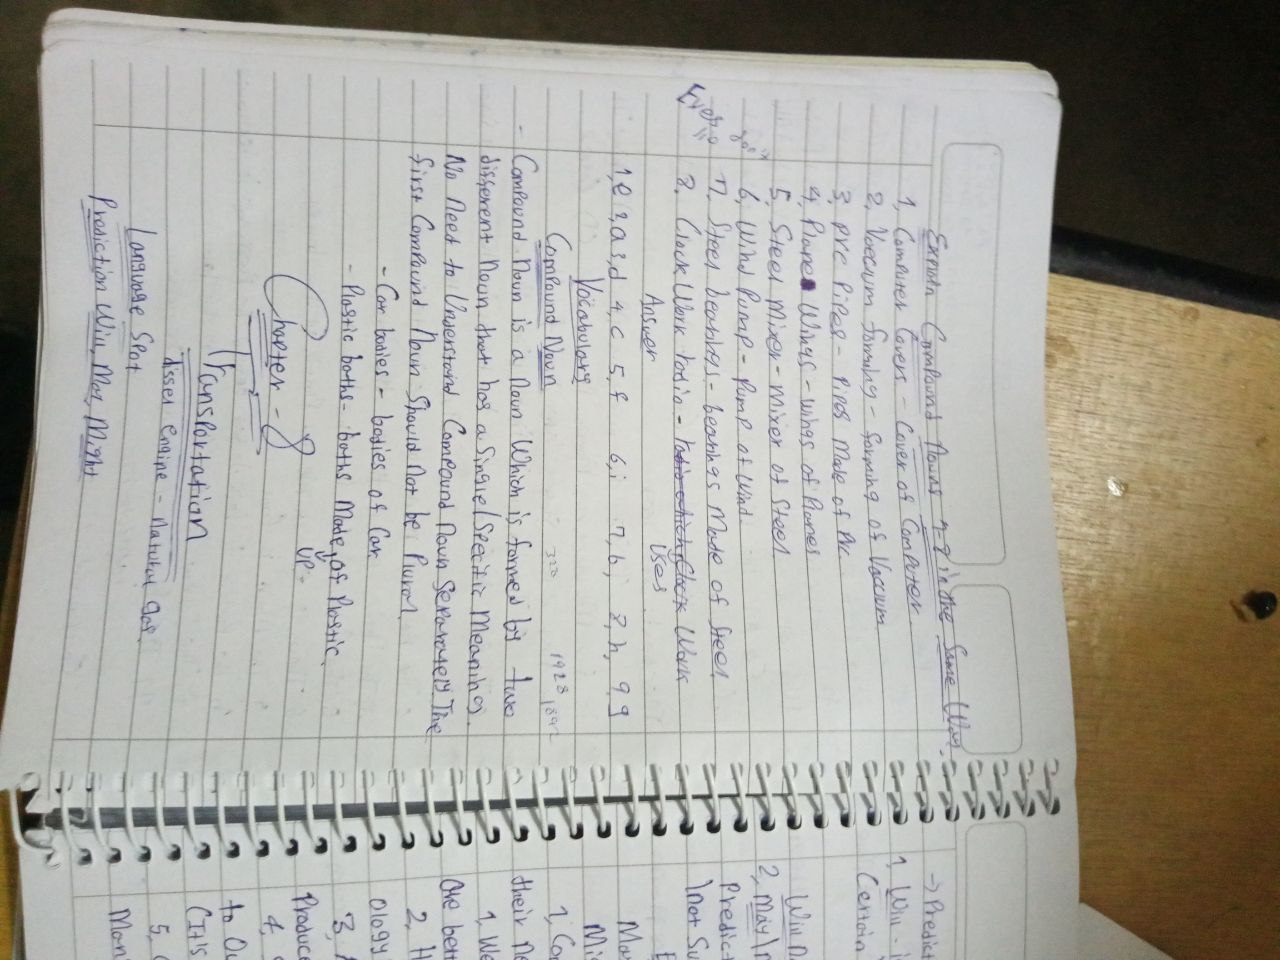 Explain Compound Nouns 4-8 in the Same Way.
1, Computer Covers - Cover of Computer
2, Vaccum forming - forming of Vaccum
3, PVC Pipes - Pipes Made of Pvc
4, Plane Wings - wings of Planes
5, Steel mixer - mixer of Steel
6, Wind Pump - Pump of Wind
7, Steel bearings - bearings Made of Steel
8, Clock Work
Uses Clock Work
Answer
1,e 2,a 3,d 4,c 5,f 6,i 7,b, 8,h, 9,g
Vocabulary
Compound Noun
- Compound Noun is a Noun Which is formed by two
different Noun that has a Single/Specific Meaning.
No Need to Understand Compound Noun Separately The
first Compound Noun Should Not be Plural
- Car bodies - bodies of Car
- Plastic baths - baths Made of Plastic.
UP.
Chapter - 8
Transportation
disel engine - Natural gas
Language Spot
Prediction Will, May, Might
323
1928
1892
-> Predict
1, Will -
Certain
Will n
2, May/
Predict
(not Su
Ma
Mi
1, Con
their ne
1, We
the bett
2, H
ology
3,
Produce
4,
to Ou
(It's
5,
Mon